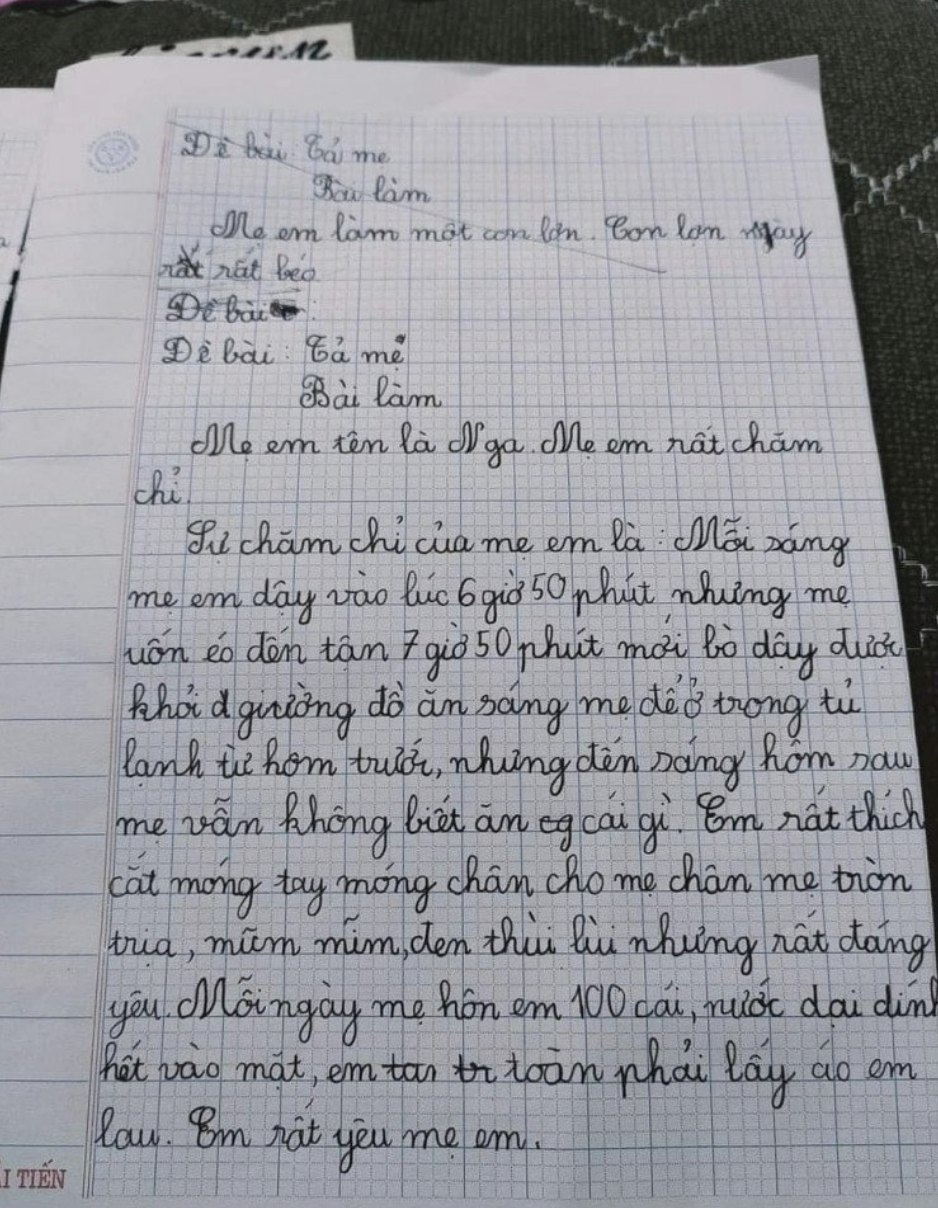 Đề bài: Tả mẹ
Bài làm
Mẹ em làm một con lợn. Con lợn này
rất rất béo
Đề bài:
Đề bài: Tả mẹ
Bài làm
Mẹ em tên là Nga. Mẹ em rất chăm
chỉ.
Sự chăm chỉ của mẹ em là: Mỗi sáng
mẹ em dậy vào lúc 6 giờ 50 phút nhưng mẹ
uốn éo đến tận 7 giờ 50 phút mới bò dậy được
khỏi d giường đồ ăn sáng mẹ để ở trong tủ
lạnh từ hôm trước, nhưng đến sáng hôm sau
mẹ vẫn không biết ăn cg cái gì. Em rất thích
cắt móng tay móng chân cho mẹ chân mẹ tròn
trịa, mũm mĩm, đen thùi lùi nhưng rất đáng
yêu. Mỗi ngày mẹ hôn em 100 cái, nước dại dính
hết vào mặt, em tan tr toàn phải lấy áo em
lau. Em rất yêu mẹ em.
ẢI TIẾN